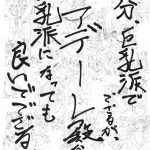 分、巨乳派で
ござるが、
アデーレ殿が
乳派になっても
良いでござる